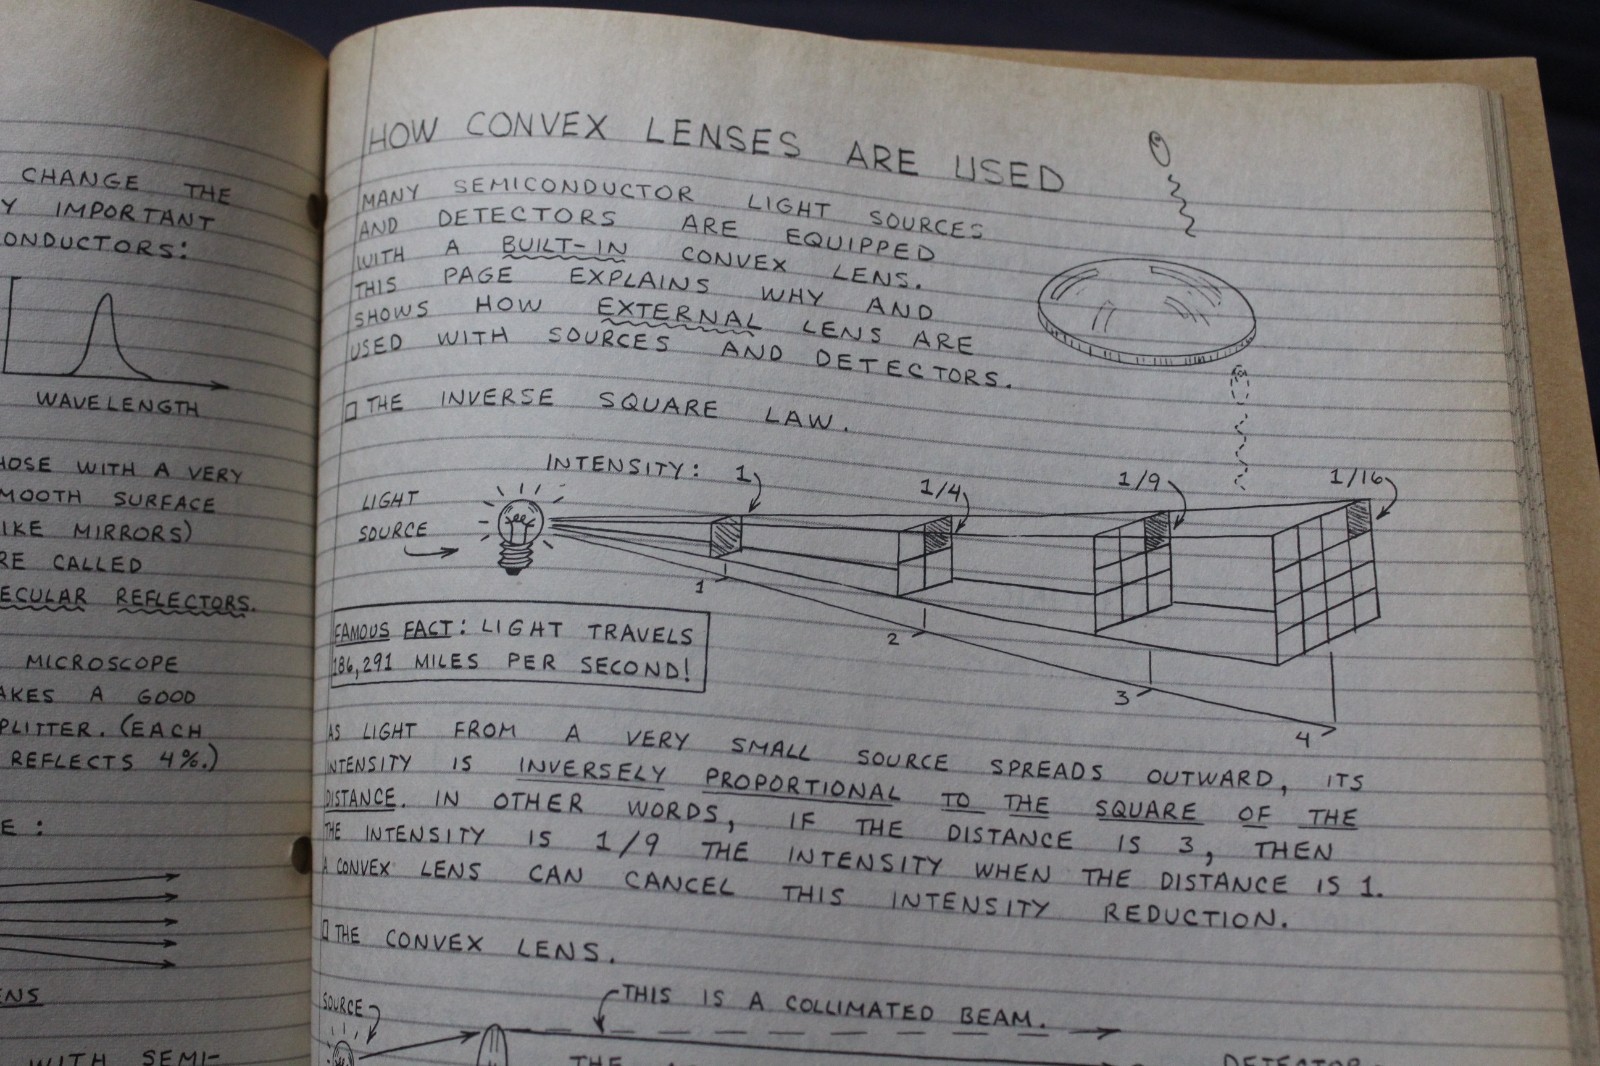 CHANGE THE
Y IMPORTANT
ONDUCTORS:
WAVELENGTH
HOSE WITH A VERY
MOOTH SURFACE
IKE MIRRORS)
RE CALLED
ECULAR REFLECTORS.
MICROSCOPE
AKES A GOOD
PLITTER. (EACH
REFLECTS 4%.)
E:
ENS
WITH SEMI-
HOW CONVEX LENSES ARE USED
MANY SEMICONDUCTOR LIGHT SOURCES
AND DETECTORS ARE EQUIPPED
WITH A BUILT-IN CONVEX LENS.
THIS PAGE EXPLAINS WHY AND
SHOWS HOW EXTERNAL LENS ARE
USED WITH SOURCES AND DETECTORS.
THE INVERSE SQUARE LAW.
INTENSITY: 1 1/4 1/9 1/16
LIGHT
SOURCE
1
2
3
4
FAMOUS FACT: LIGHT TRAVELS
186,291 MILES PER SECOND!
AS LIGHT FROM A VERY SMALL SOURCE SPREADS OUTWARD, ITS
INTENSITY IS INVERSELY PROPORTIONAL TO THE SQUARE OF THE
DISTANCE. IN OTHER WORDS, IF THE DISTANCE IS 3, THEN
THE INTENSITY IS 1/9 THE INTENSITY WHEN THE DISTANCE IS 1.
A CONVEX LENS CAN CANCEL THIS INTENSITY REDUCTION.
THE CONVEX LENS.
SOURCE
THIS IS A COLLIMATED BEAM.
THE
DETECTOR